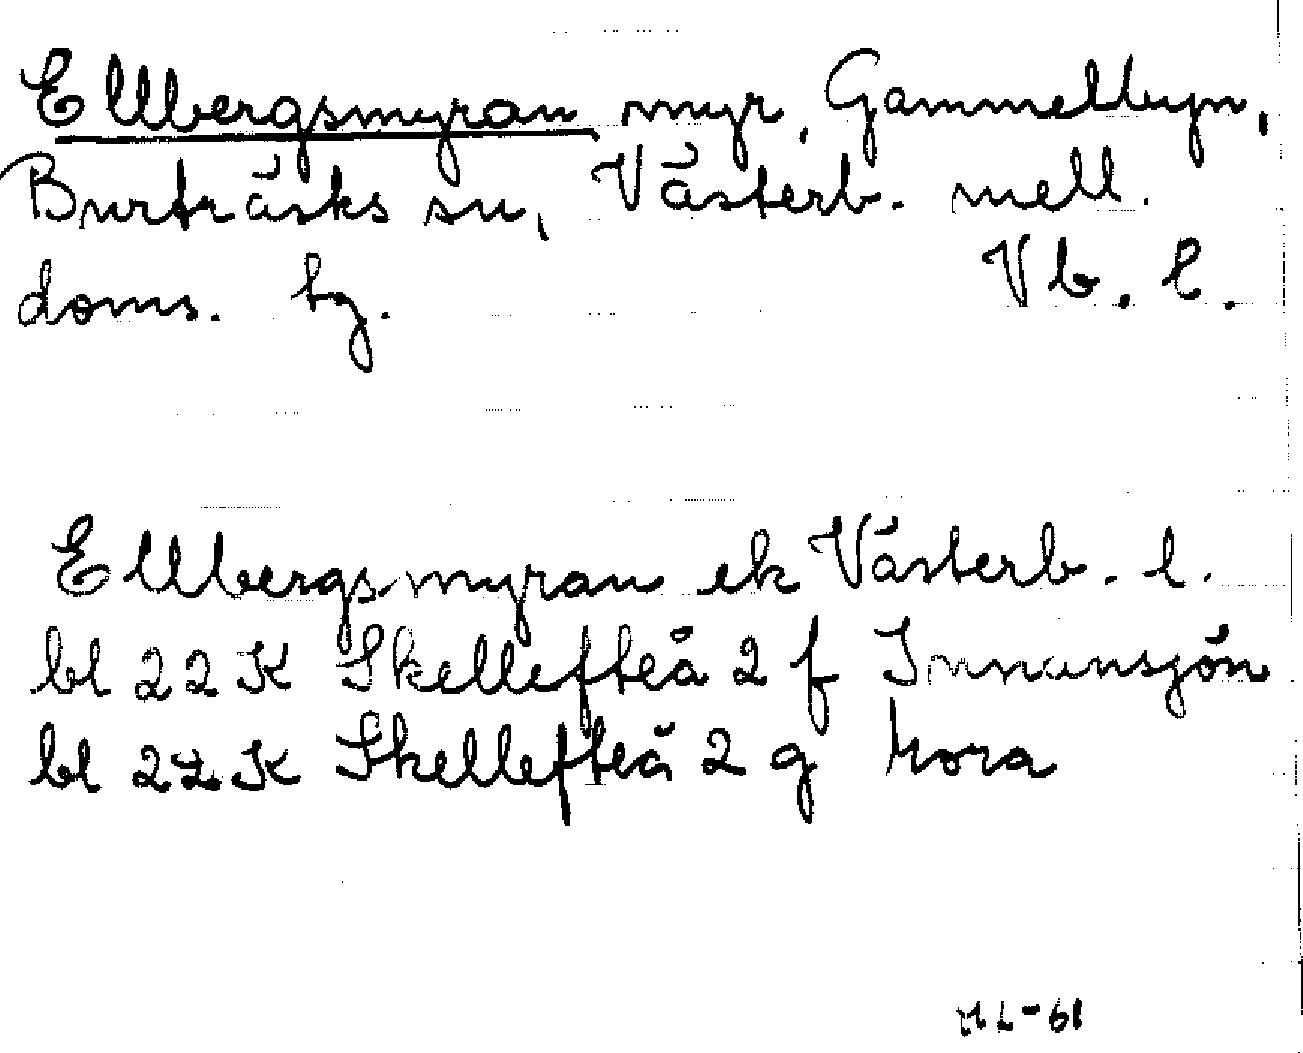 Ellbergsmyran myr, Gammelbyn,
Burträsks sn, Västerb. mell.
doms. hg. Vb. l.
Ellbergsmyran ek Västerb. l.
bl 22 K Skellefteå 2 f Innansjön
bl 22 K Skellefteå 2 g Mora